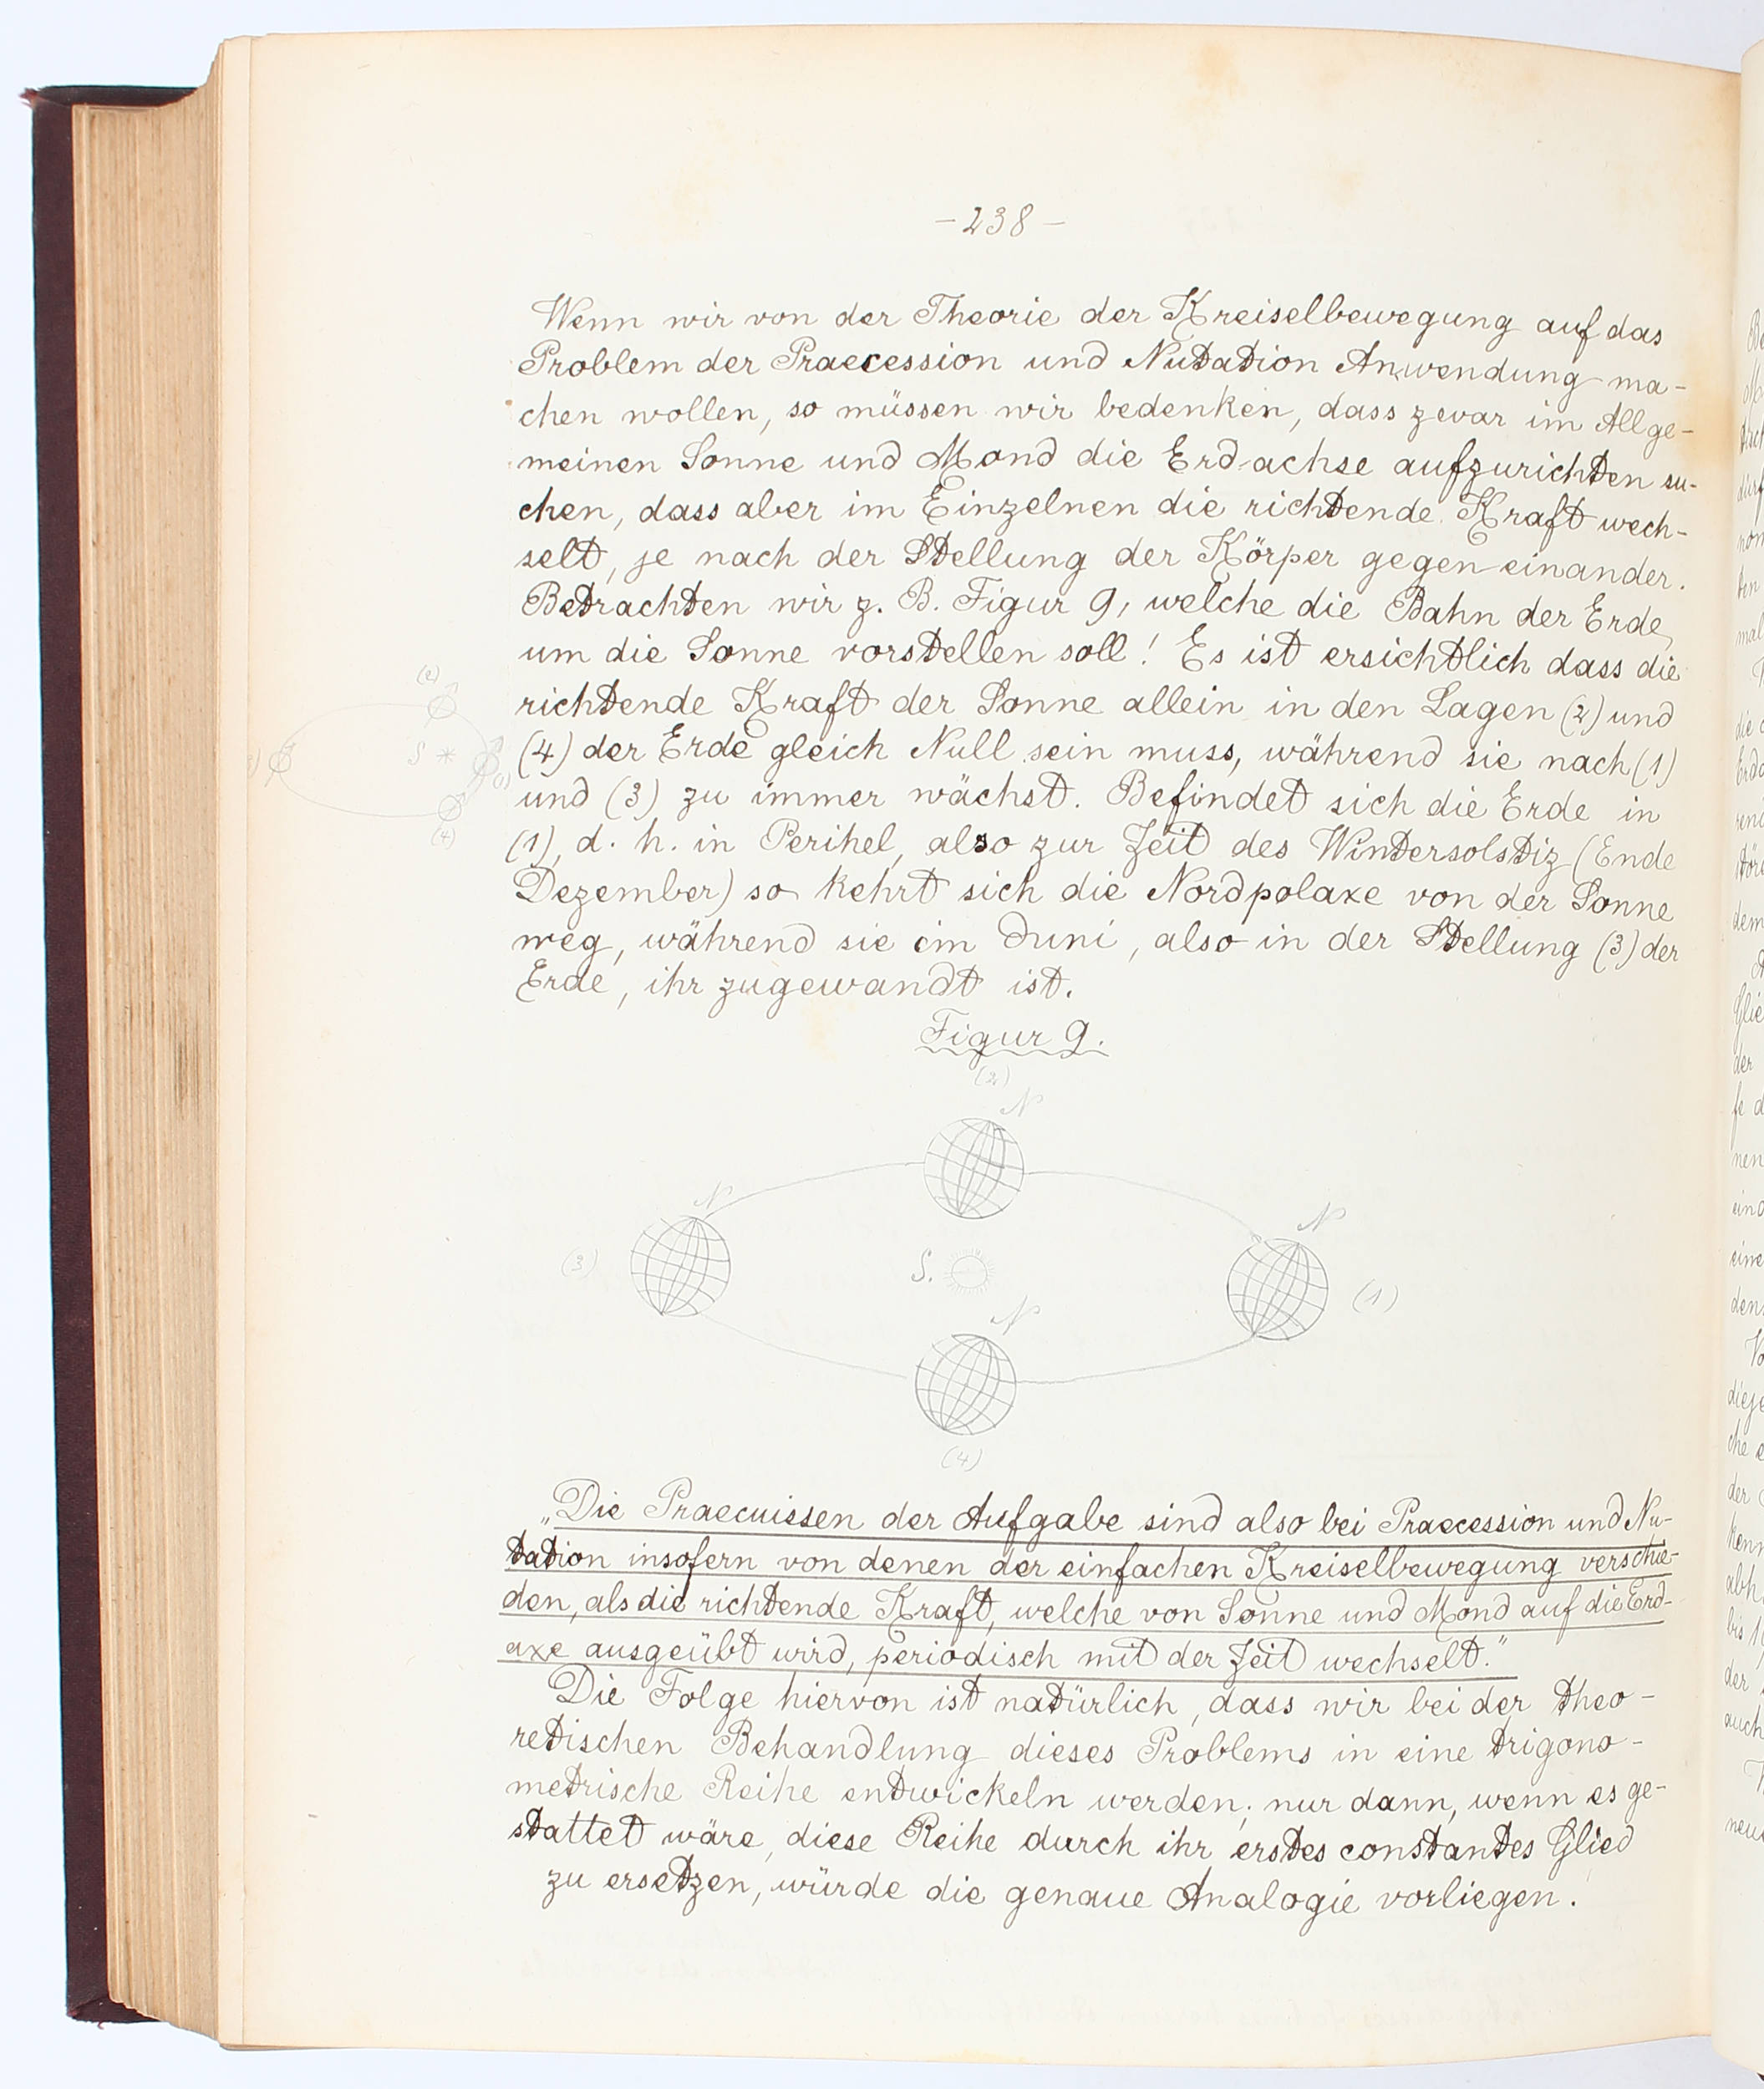 – 238 –
Wenn wir von der Theorie der Kreiselbewegung auf das
Problem der Praecession und Nutation Anwendung ma-
chen wollen, so müssen wir bedenken, dass zwar im Allge-
meinen Sonne und Mond die Erdachse aufzurichten su-
chen, dass aber im Einzelnen die richtende Kraft wech-
selt, je nach der Stellung der Körper gegen einander.
Betrachten wir z. B. Figur 9, welche die Bahn der Erde
um die Sonne vorstellen soll! Es ist ersichtlich dass die
richtende Kraft der Sonne allein in den Lagen (2) und
(4) der Erde gleich Null sein muss, während sie nach (1)
und (3) zu immer wächst. Befindet sich die Erde in
(1), d. h. in Perihel, also zur Zeit des Wintersolstiz (Ende
Dezember) so kehrt sich die Nordpolaxe von der Sonne
weg, während sie im Juni, also in der Stellung (3) der
Erde, ihr zugewandt ist.
(2)
S
(1)
(4)
Figur 9.
(2)
N
N
N
(3)
S.
(1)
N
(4)
„Die Praecuissen der Aufgabe sind also bei Praecession und Nu-
tation insofern von denen der einfachen Kreiselbewegung verschie-
den, als die richtende Kraft, welche von Sonne und Mond auf die Erd-
axe ausgeübt wird, periodisch mit der Zeit wechselt."
Die Folge hiervon ist natürlich, dass wir bei der theo-
retischen Behandlung dieses Problems in eine trigono-
metrische Reihe entwickeln werden; nur dann, wenn es ge-
stattet wäre, diese Reihe durch ihr erstes constantes Glied
zu ersetzen, würde die genaue Analogie vorliegen.